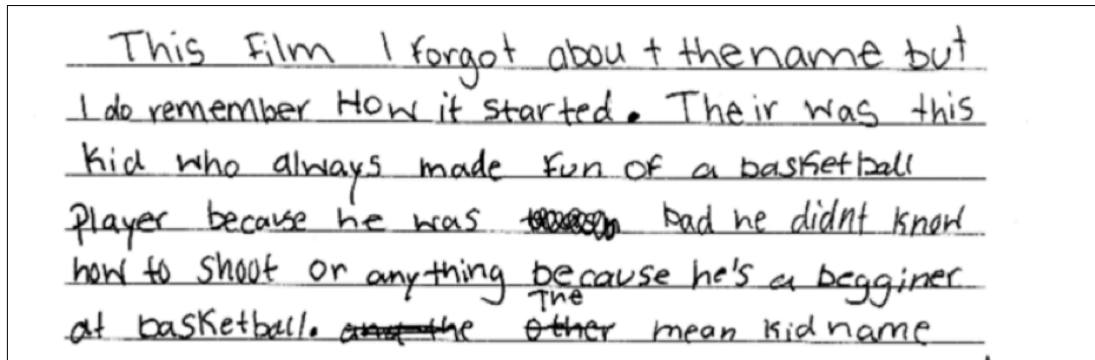 This Film I forgot about the name but
I do remember How it started. Their was this
kid who always made fun of a basketball
Player because he was bad he didnt know
how to shoot or anything because he's a begginer
at basketball. and the other The mean kid name